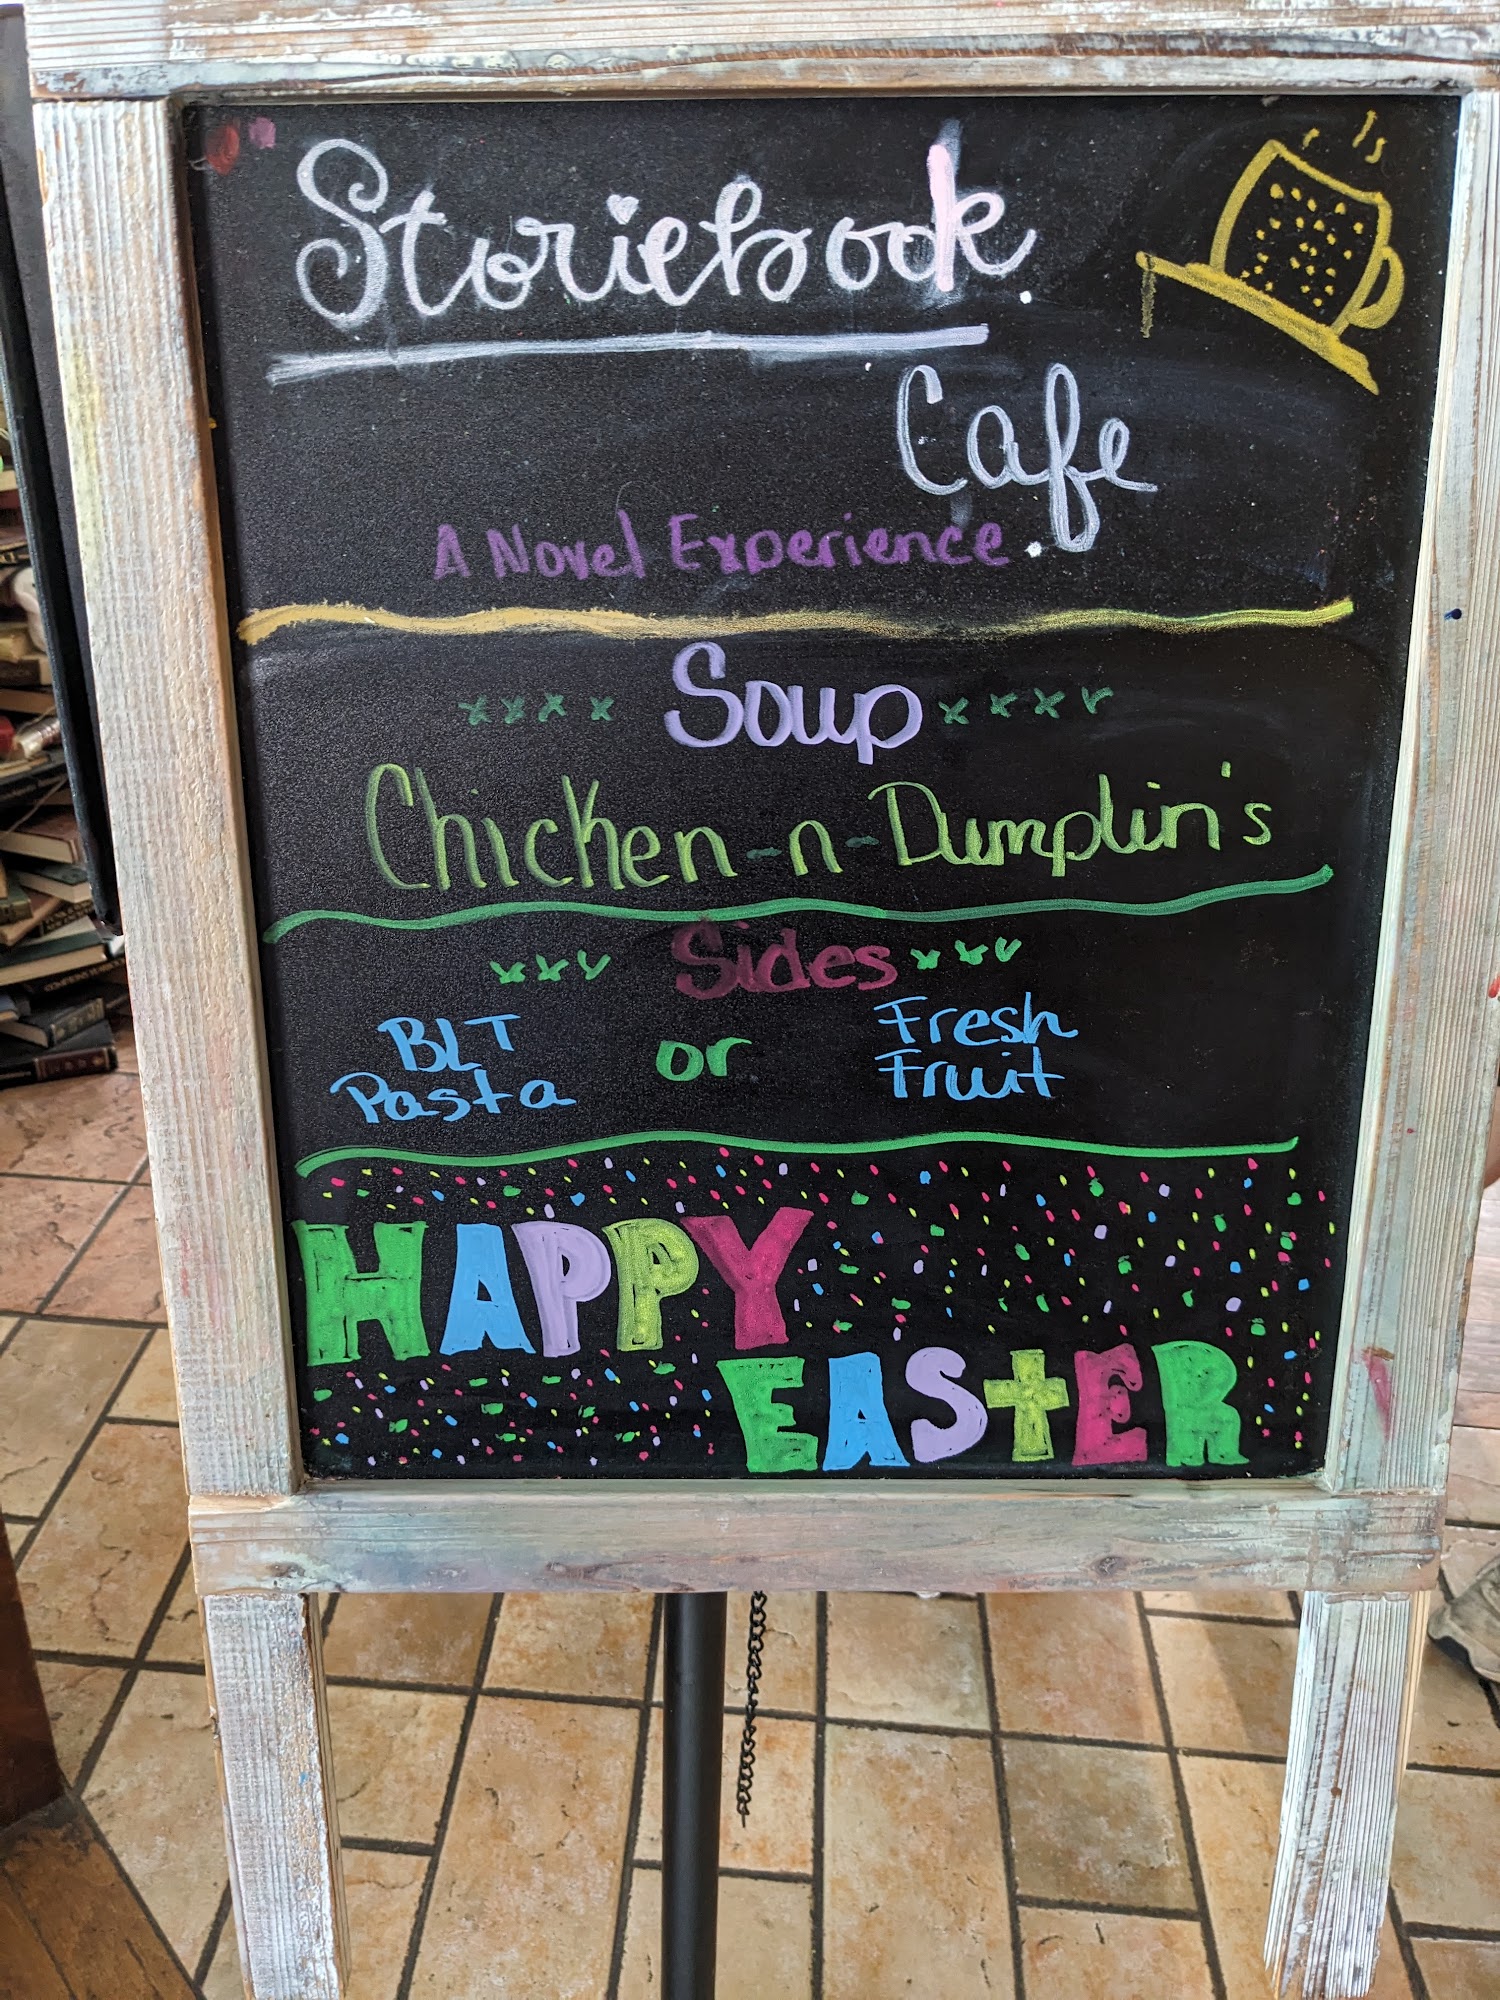 Storiebook
Cafe
A Novel Experience
Soup
Chicken-n-Dumplin's
Sides
BLT
Pasta
or
Fresh
Fruit
HAPPY
EASTER